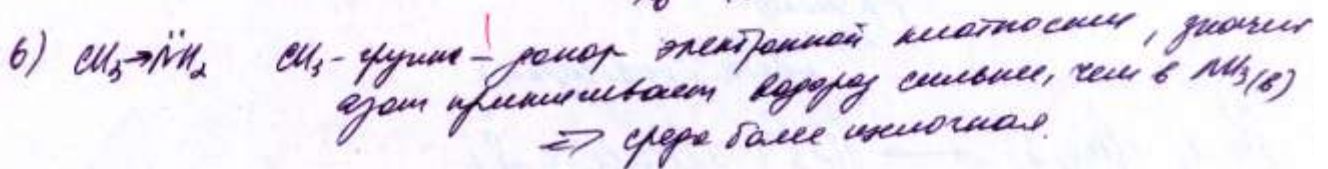 б) CH₃→N̈H₂ CH₃-группа – донор электронной плотности, значит
азот притягивает водород сильнее, чем в NH₃(в)
=> среда более щелочная.